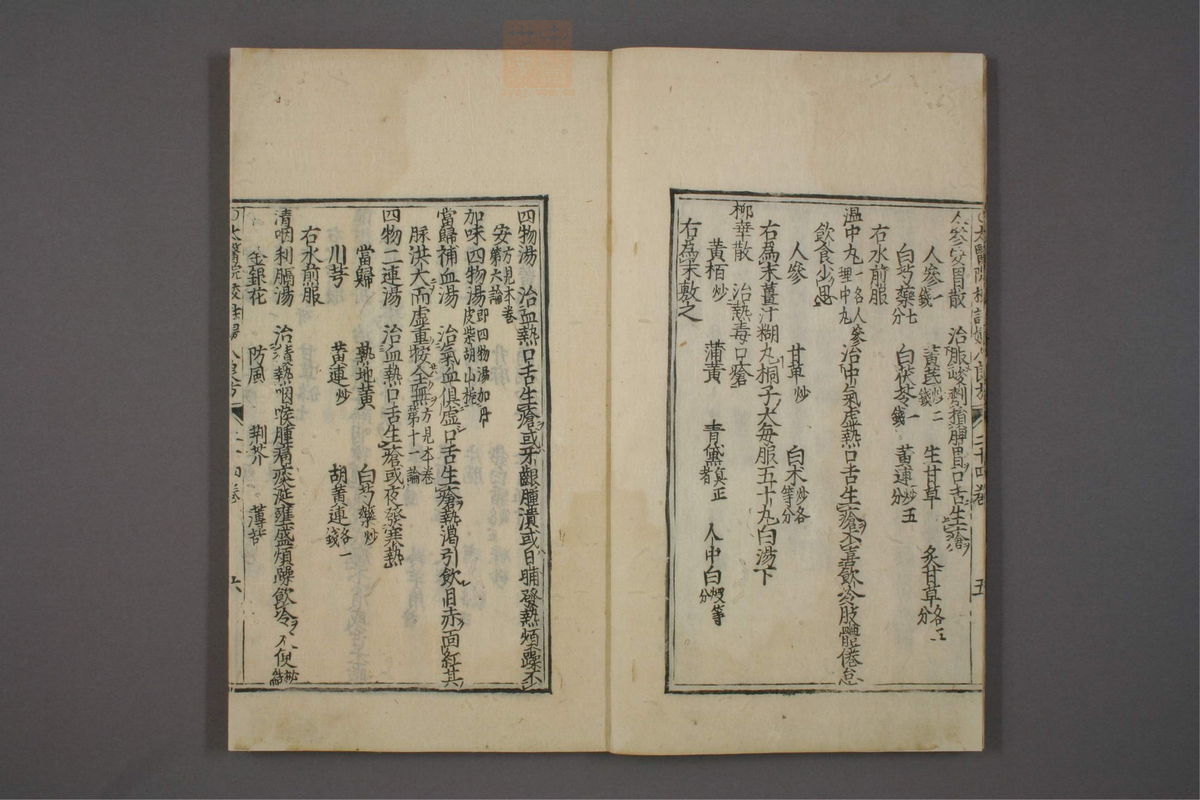 太醫院校註婦人良方 二十四卷 五
人參安胃散 治服峻劑損脾胃口舌生瘡
人參一錢 黃芪炒二錢 生甘草 炙甘草各五分
白芍藥七分 白茯苓一錢 黃連炒五分
右水煎服
溫中丸一名人參理中丸 治中氣虛熱口舌生瘡不喜飲冷肢體倦怠
飲食少思
人參 甘草炒 白朮炒各等分
右爲末薑汁糊丸桐子大每服五十九白湯下
柳華散 治熱毒口瘡
黃栢炒 蒲黃 青黛真正者 人中白煅等分
右爲末敷之
四物湯 治血熱口舌生瘡或牙齦腫潰或日晡發熱煩躁不
安方見本卷第六論
加味四物湯即四物湯加丹皮柴胡山梔
當歸補血湯 治氣血俱虛口舌生瘡熱渴引飲目赤面紅其
脉洪大而虛重按全無方見本卷第十一論
四物二連湯 治血熱口舌生瘡或夜發寒熱
當歸 熟地黃 白芍藥炒
川芎 黃連炒 胡黃連各一錢
右水煎服
清咽利膈湯 治積熱咽喉腫痛痰涎壅盛煩躁飲冷大便秘結
金銀花 防風 荆芥 薄荷
太醫院校註婦人良方 二十四卷 六